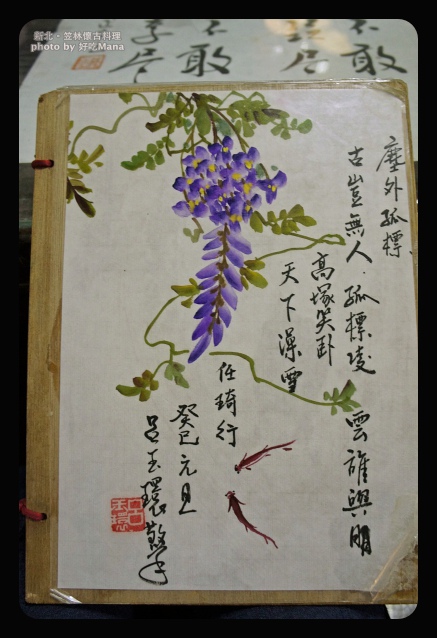 新北·笠林懷古料理
photo by 好吃Mana
不敢
不敢
塵外孤標
古豈無人.孤標凌雲誰與朋
高塚笑卧
天下澡雪
任琦行
癸巳元旦
呂玉環敬筆